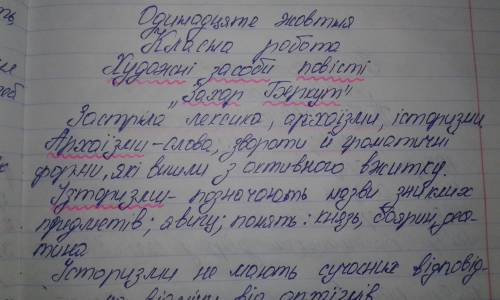 Одинадцяте жовтня
Класна робота
Художні засоби повісті
„Захар Беркут"
Застріла лексика, архаїзми, історизми
Архаїзми - слова, звороти й граматичні
форми, які вийшли з активного вжитку.
Історизми - позначають назви зниклих
предметів; явищ; понять: князь, боярин, деся-
тина
Історизми не мають сучасних відповід-
на відміну від